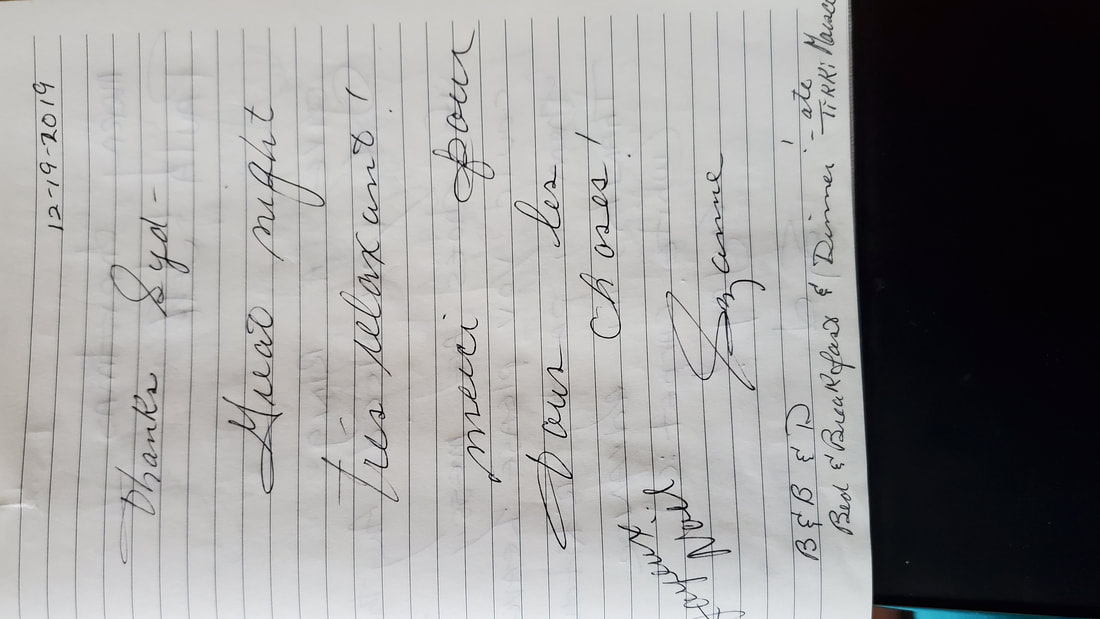 12-19-2019
Thanks Syd -
Great night
Très relaxant!
merci pour
tous les
choses!
Suzanne
Joyeux
Noël
B & B & D
Bed & Breakfast & Dinner! - ate
Tikki